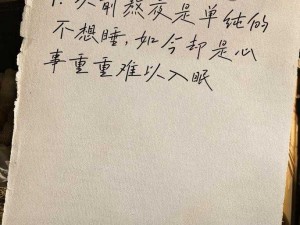 1. 以前熬夜是单纯的
不想睡，如今却是心
事重重难以入眠